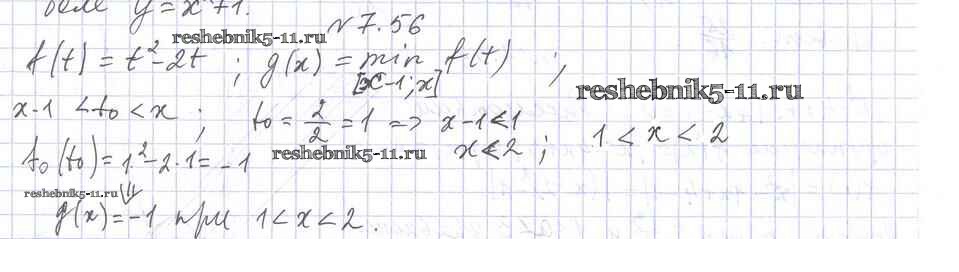 беле y = x² + 1.
reshebnik5-11.ru № 7.56
f(t) = t² - 2t ; g(x) = min f(t) ;
[x-1; x]
reshebnik5-11.ru
x-1 < t₀ < x ; t₀ = 2/2 = 1 => x-1 < 1
x < 2 ; 1 < x < 2
f₀(t₀) = 1² - 2·1 = -1 reshebnik5-11.ru
reshebnik5-11.ru ⇓
g(x) = -1 при 1 < x < 2.